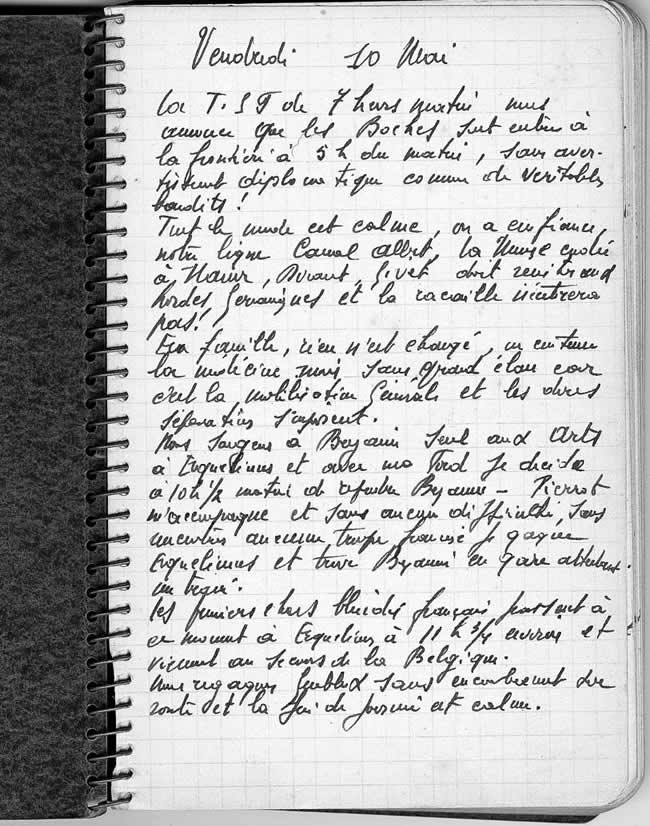 Vendredi 10 Mai
La T.S.F de 7 heures matin nous
annonce que les Boches sont entrés à
la frontière à 5 h du matin, sans aver-
tissement diplomatique comme de véritables
bandits!
Tout le monde est calme, on a confiance,
notre ligne Canal Albert, la Meuse
à Namur, Dinant, Givet doit resister aux
hordes Germaniques et la racaille n'entrera
pas!
En famille, rien n'est changé, on continue
la médecine mais sans grand élan car
c'est la mobilisation Générale et les dures
séparations s'imposent.
Nous songeons à Benjamin seul aux Arts
à Erquelinnes et avec ma Ford je decide
à 10 h 1/2 matin de Benjamin - Pierrot
m'accompagne et sans aucune difficulté, sans
rencontrer aucune troupe française je gagne
Erquelinnes et trouve Benjamin en gare attendant
un train.
Les premiers chars blindés français passent à
ce moment à Erquelinnes à 11 h 3/4 environ et
viennent au secours de la Belgique.
Nous regagnons Gembloux sans encombrement de
route et la fin de journée est calme.